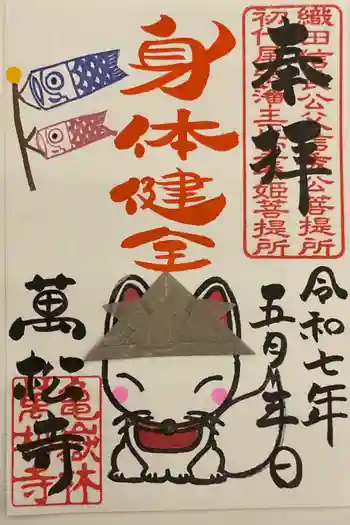 奉拝
織田信長公父信秀公菩提所
初代尾張藩主春姫菩提所
身体健全
令和七年
五月吉日
萬松寺
亀嶽林
萬松寺